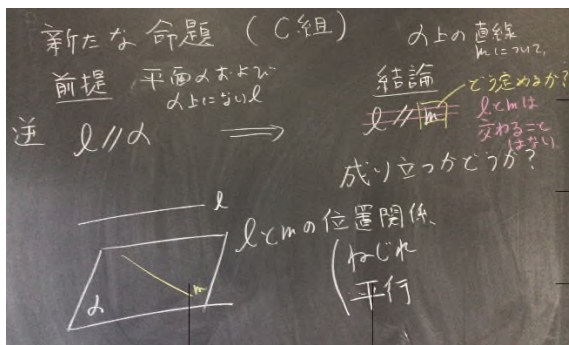 新たな命題 (C組)
前提 平面αおよび
α上にないl
逆 l//α ⟹
α上の直線
mについて、
結論
どう定めるか?
l//m
lとmは
交わること
はない
成り立つかどうか?
l
α
m
lとmの位置関係
ねじれ
平行